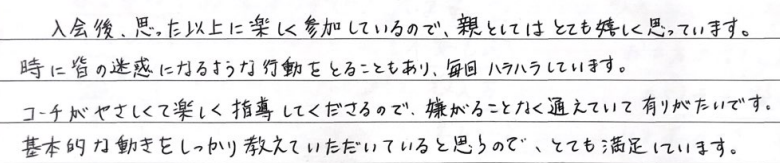 入会後、思った以上に楽しく参加しているので、親としてはとても嬉しく思っています。
時に皆の迷惑になるような行動をとることもあり、毎回ハラハラしています。
コーチがやさしくて楽しく指導してくださるので、嫌がることなく通えていて有りがたいです。
基本的な動きをしっかり教えていただいていると思うので、とても満足しています。